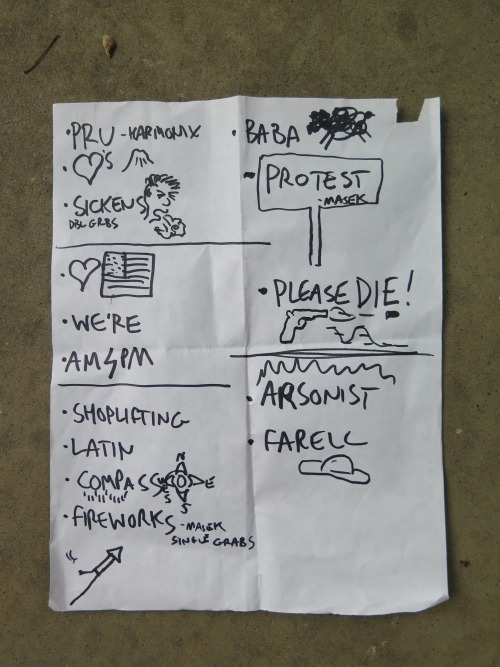 • PRU - HARMONIX
• 'S
• SICKENS
DBL GRBS
•
• WE'RE
• AM PM
• SHOPLIFTING
• LATIN
• COMPASS
N
W E
S
• FIREWORKS - MASEK
SINGLE GRABS
• BABA
• PROTEST
- MASEK
• PLEASE DIE!
• ARSONIST
• FARELL